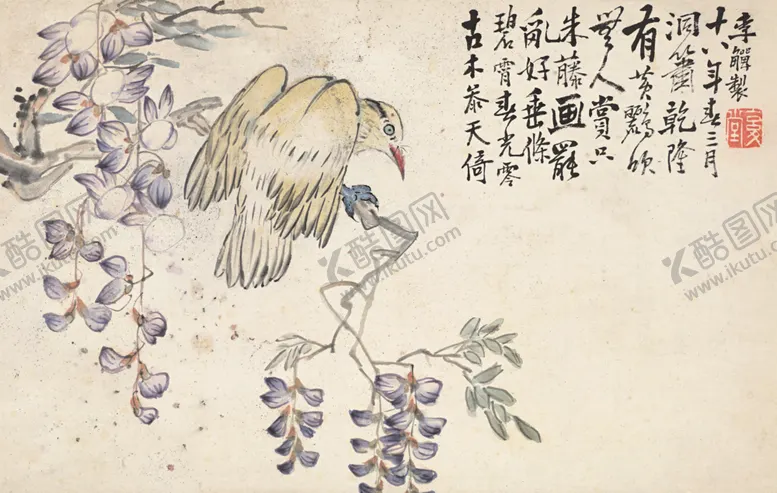 古木參天倚
碧霄春光零
亂好垂條
朱藤画罷
無人賞只
有黄鸝頌
洞簫乾隆
十八年春三月
李觶製
酷图网
www.ikutu.com
酷图网
www.ikutu.com
酷图网
www.ikutu.com